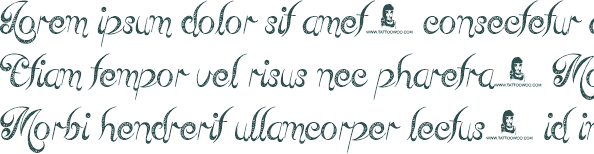 Lorem ipsum dolor sit amet WWW.TATTOOWOO.COM consectetur a
Etiam tempor vel risus nec pharetra WWW.TATTOOWOO.COM Mo
Morbi hendrerit ullamcorper lectus WWW.TATTOOWOO.COM id in